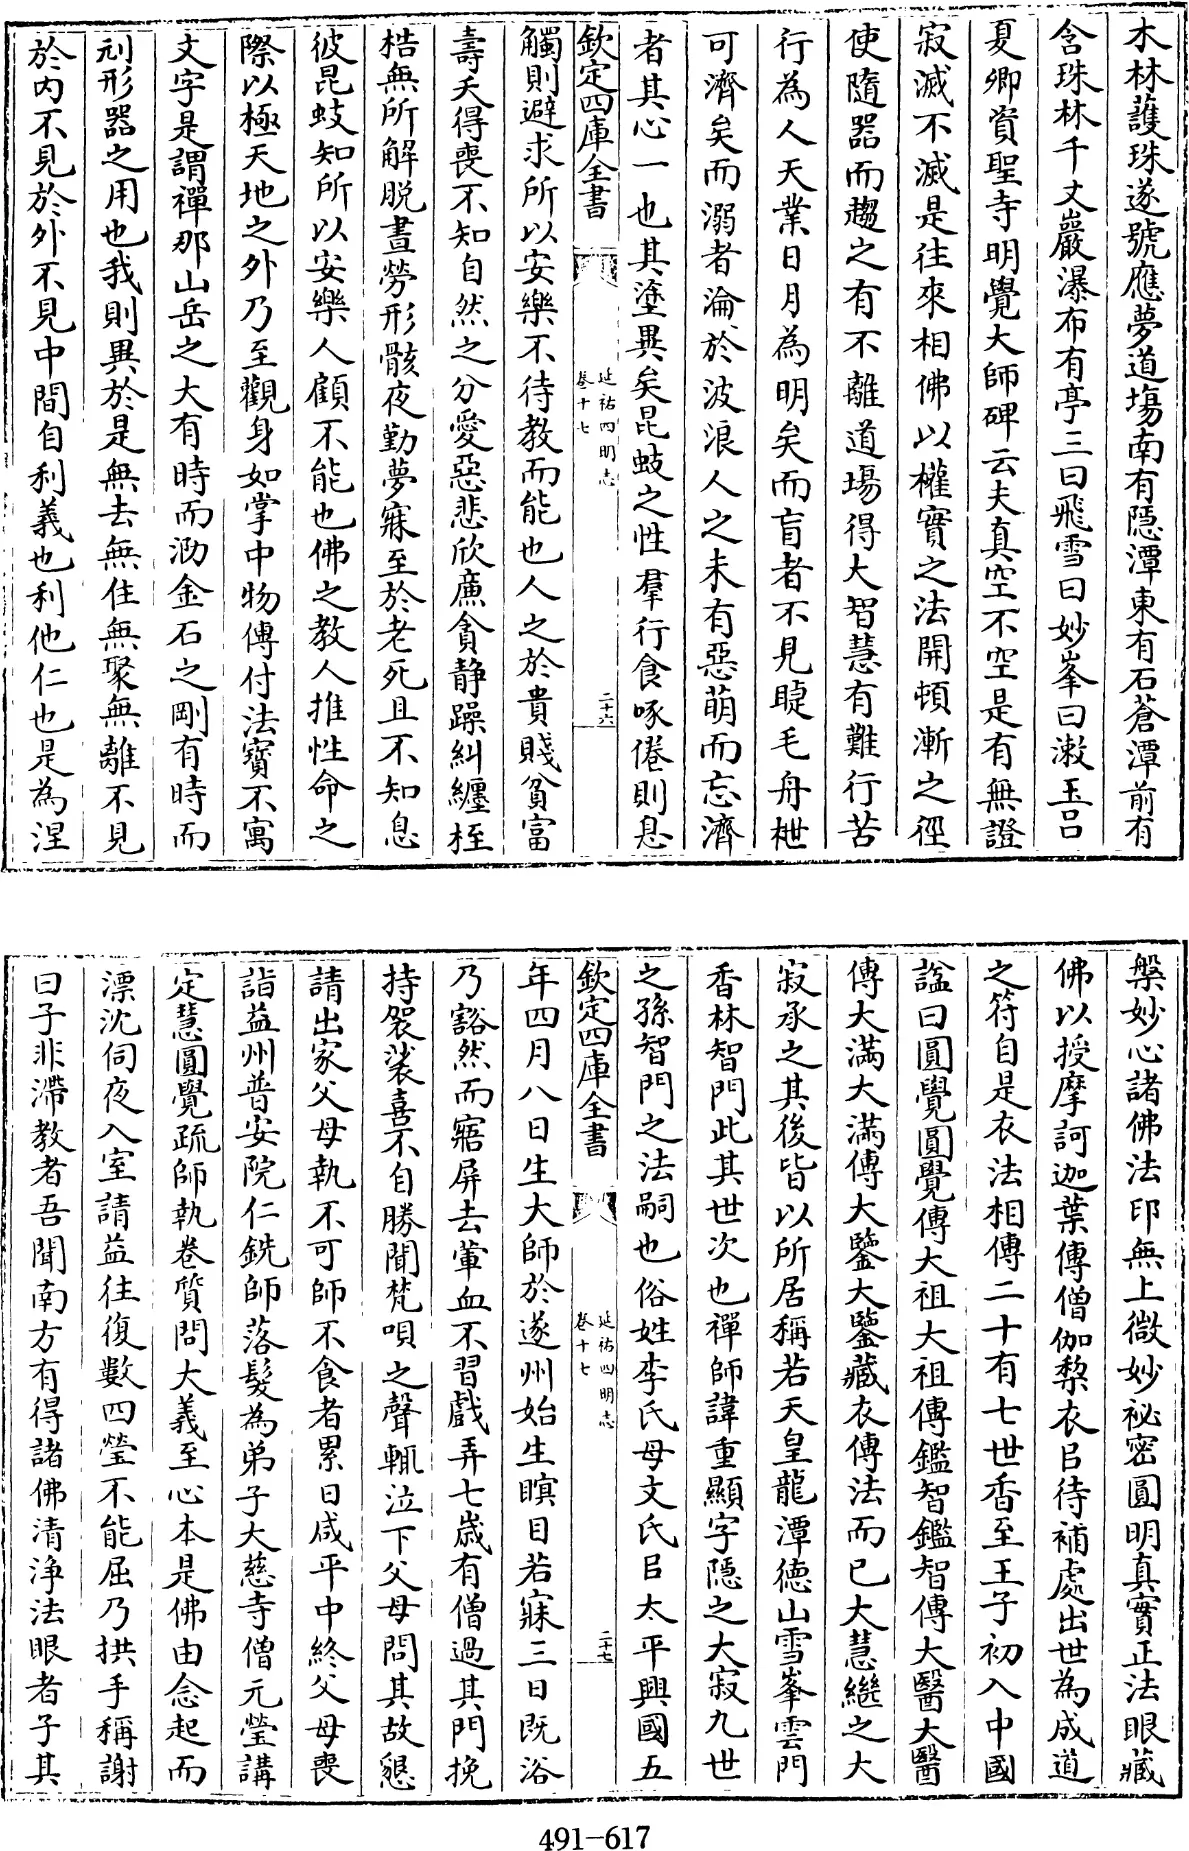 木林䕶珠遂號應夢道場南有隱潭東有石蒼潭前有
含珠林千丈巖瀑布有亭三曰飛雪曰妙峯曰漱玉吕
夏卿資聖寺明覺大師碑云夫真空不空是有無證
寂滅不滅是往來相佛以權實之法開頓漸之徑
使隨器而趨之有不離道場得大智慧有難行苦
行為人天業日月為明矣而盲者不見睫毛舟枻
可濟矣而溺者淪於波浪人之未有惡萌而忘濟
者其心一也其塗異矣昆蚑之性羣行食啄倦則息
欽定四庫全書
延祐四明志
卷十七
二十六
觸則避求所以安樂不待教而能也人之於貴賤貧富
壽夭得喪不知自然之分愛惡悲欣廉貪静躁糾纏桎
梏無所解脱晝勞形骸夜勤夢寐至於老死且不知息
彼昆蚑知所以安樂人顧不能也佛之教人推性命之
際以極天地之外乃至觀身如掌中物傳付法寶不寓
文字是謂禪那山岳之大有時而泐金石之剛有時而
刓形器之用也我則異於是無去無住無聚無離不見
於内不見於外不見中間自利義也利他仁也是為涅
槃妙心諸佛法印無上微妙祕密圓明真實正法眼藏
佛以授摩訶迦葉傳僧伽棃衣㠯待補處出世為成道
之符自是衣法相傳二十有七世香至王子初入中國
諡曰圓覺圓覺傳大祖大祖傳鑑智鑑智傳大醫大醫
傳大滿大滿傳大鑒大鑒藏衣傳法而已大慧繼之大
寂承之其後皆以所居稱若天皇龍潭徳山雪峯雲門
香林智門此其世次也禪師諱重顯字隱之大寂九世
之孫智門之法嗣也俗姓李氏母文氏㠯太平興國五
欽定四庫全書
延祐四明志
卷十七
二十七
年四月八日生大師於遂州始生瞑目若寐三日既浴
乃豁然而寤屏去葷血不習戲弄七嵗有僧過其門挽
持袈裟喜不自勝聞梵唄之聲輙泣下父母問其故懇
請出家父母執不可師不食者累日咸平中終父母喪
詣益州普安院仁銑師落髮為弟子大慈寺僧元瑩講
定慧圓覺疏師執卷質問大義至心本是佛由念起而
漂沈伺夜入室請益往復數四瑩不能屈乃拱手稱謝
曰子非滯教者吾聞南方有得諸佛清浄法眼者子其
491-617